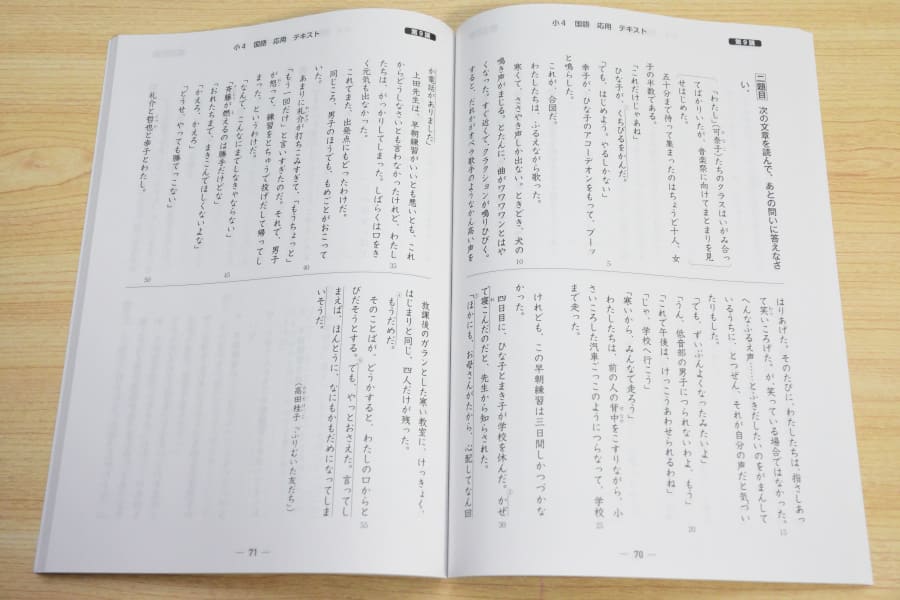 小4 国語 応用 テキスト
第9講
二題目 次の文章を読んで、あとの問いに答えなさ
い。
「わたし」(可奈子)たちのクラスはいがみ合っ
てばかりいたが、音楽祭に向けてまとまりを見
せはじめた。
五十分まで待って集まったのはちょうど十人、女
子の半数である。
「これだけじゃあね」
ひな子が、くちびるをかんだ。
「でも、はじめよう。やるしかない」
幸子が、ひな子のアコーデオンをもって、ブーッ
と鳴らした。
これが、合図だ。
わたしたちは、ふるえながら歌った。
寒くて、ささやき声しか出ない。ときどき、犬の
鳴き声がまじる。とたんに、曲がワワワンとはや
くなった。すぐ近くで、クラクションが鳴りひびく。
すると、だれかがオペラ歌手のようなかん高い声を
5
10
はりあげた。そのたびに、わたしたちは、指さしあっ
て笑いころげた。が、笑っている場合ではなかった。
へんなふるえ声……とふきだしたいのをがまんして
いるうちに、とつぜん、それが自分の声だと気づい
たりもした。
「でも、ずいぶんよくなったみたいよ」
「うん、低音部の男子につられないわよ、もう」
「これで午後は、けっこうあわせられるわね」
「じゃ、学校へ行こう」
「寒いから、みんなで走ろう」
わたしたちは、前の人の背中をこすりながら、小
さいころした汽車ごっこのようにつらなって、学校
まで走った。
けれども、この早朝練習は三日間しかつづかな
かった。
四日目に、ひな子とまき子が学校を休んだ。かぜ
で寝こんだのだと、先生から知らされた。
「ほかにも、お母さんがたから、心配してなん回
15
20
25
30
― 70 ―
小4 国語 応用 テキスト
第9講
か電話がありました」
上田先生は、早朝練習がいいとも悪いとも、これ
からどうしなさいとも言わなかったけれど、わたし
たちは、がっかりしてしまった。しばらくは口をき
く元気も出なかった。
これでまた、出発点にもどったわけだ。
同じころ、男子のほうでも、もめごとがおこって
いた。
あまりに礼介が打ちこみすぎて、「もうちょっと」
「もう一回だけ」と言いすぎたのだ。それで、男子
が怒って、練習をとちゅうで投げだして帰ってし
まった、というわけだ。
「なんで、こんなにまでしなきゃならない」
「斉藤が燃えるのは勝手だけどな」
「おれたちまで、まきこんでほしくないよな」
「かえろ、かえろ」
「どうせ、やっても勝てっこない」
礼介と哲也と歩子とわたし。
35
40
45
50
放課後のガランとした寒い教室に、けっきょく、
はじまりと同じ、四人だけが残った。
もうだめだ。
そのことばが、どうかすると、わたしの口からと
びだそうとする。でも、やっとおさえた。言ってし
まえば、ほんとうに、なにもかもだめになってしま
いそうだ。
〈高田桂子『ふりむいた友だち』〉
55
― 71 ―